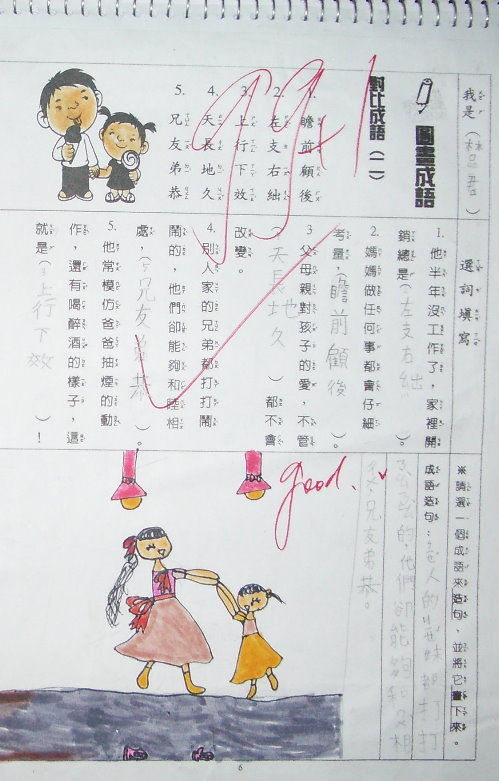 我是（ ）
圖畫成語
對比成語（二）
1. 瞻前顧後
2. 左支右絀
3. 上行下效
4. 天長地久
5. 兄友弟恭
99+1
選詞填寫
1. 他半年沒工作了，家裡開
銷總是（左支右絀）。
2. 媽媽做任何事都會仔細
考量，（瞻前顧後）。
3 父母親對孩子的愛，不管
（天長地久）都不會
改變。
4. 別人家的兄弟都打打鬧
鬧的，他們卻能夠和睦相
處，（兄友弟恭）。
5. 他常模仿爸爸抽煙的動
作，還有喝醉酒的樣子，這
就是（上行下效）！
※請選一個成語來造句，並將它畫下來。
成語造句：人的姊妹都打打
的，他們卻能夠和相
兄友弟恭。
good.
6